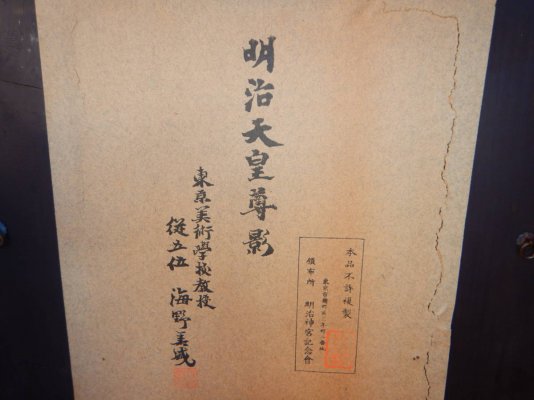 明治天皇尊影
東京美術學校教授
從五位 海野美盛
本品不許複製
頒布所 明治神宮記念會